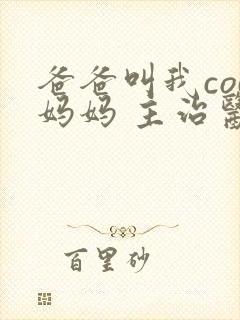 爸爸叫我co
妈妈 主治
百里砂